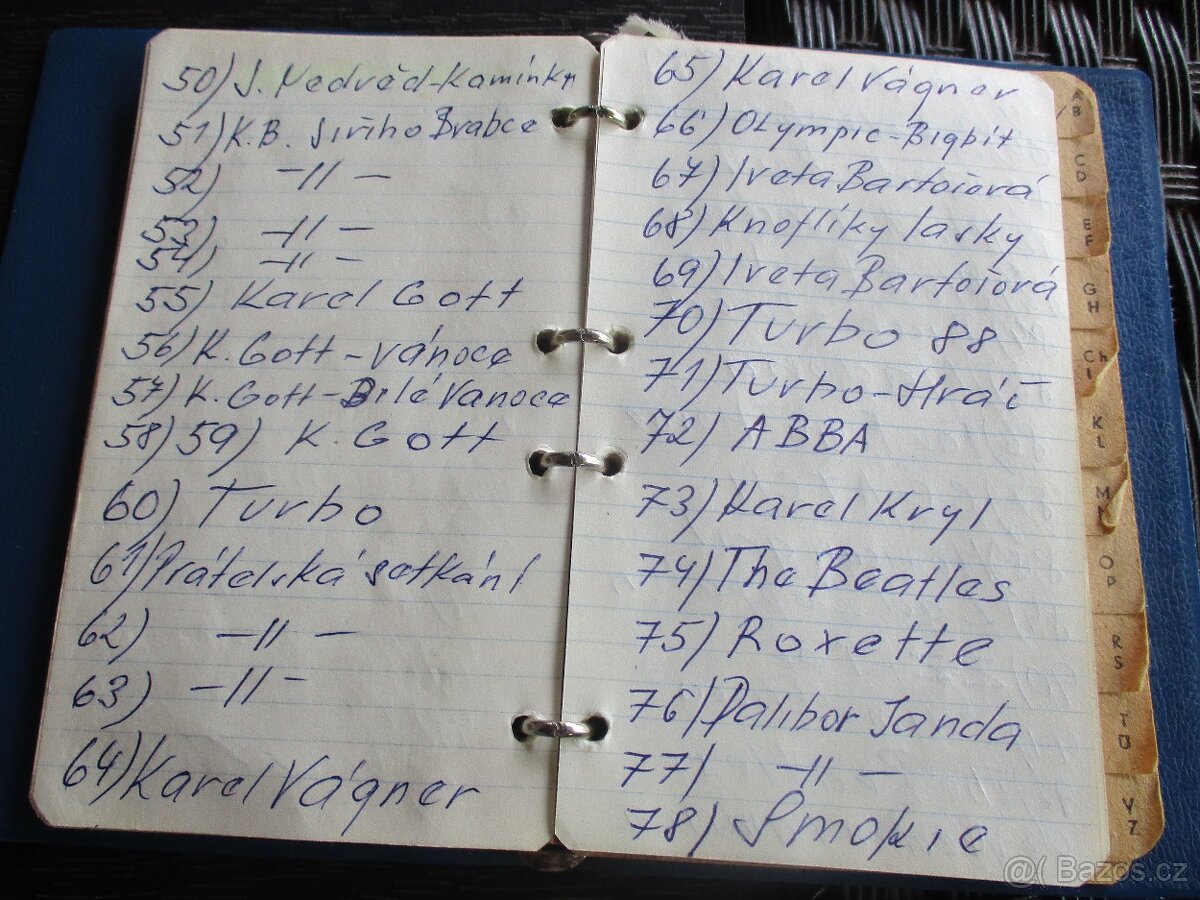 50) J. Nedvěd-Kamínky
51) K.B. Jiřího Brabce
52) -||-
53) -||-
54) -||-
55) Karel Gott
56) K. Gott - vánoce
57) K. Gott-Bílé Vanoce
58) 59) K. Gott
60) Turbo
61) Přátelská setkání
62) -||-
63) -||-
64) Karel Vágner
65) Karel Vágner
66) Olympic-Bigbít
67) Iveta Bartošová
68) Knoflíky lasky
69) Iveta Bartošová
70) Turbo 88
71) Turbo-Hráč
72) ABBA
73) Karel Kryl
74) The Beatles
75) Roxette
76) Dalibor Janda
77) -||-
78) Smokie
A
B
C
D
E
F
G
H
Ch
I
K
L
M
N
O
P
R
S
T
U
V
Z
@( Bazos.cz